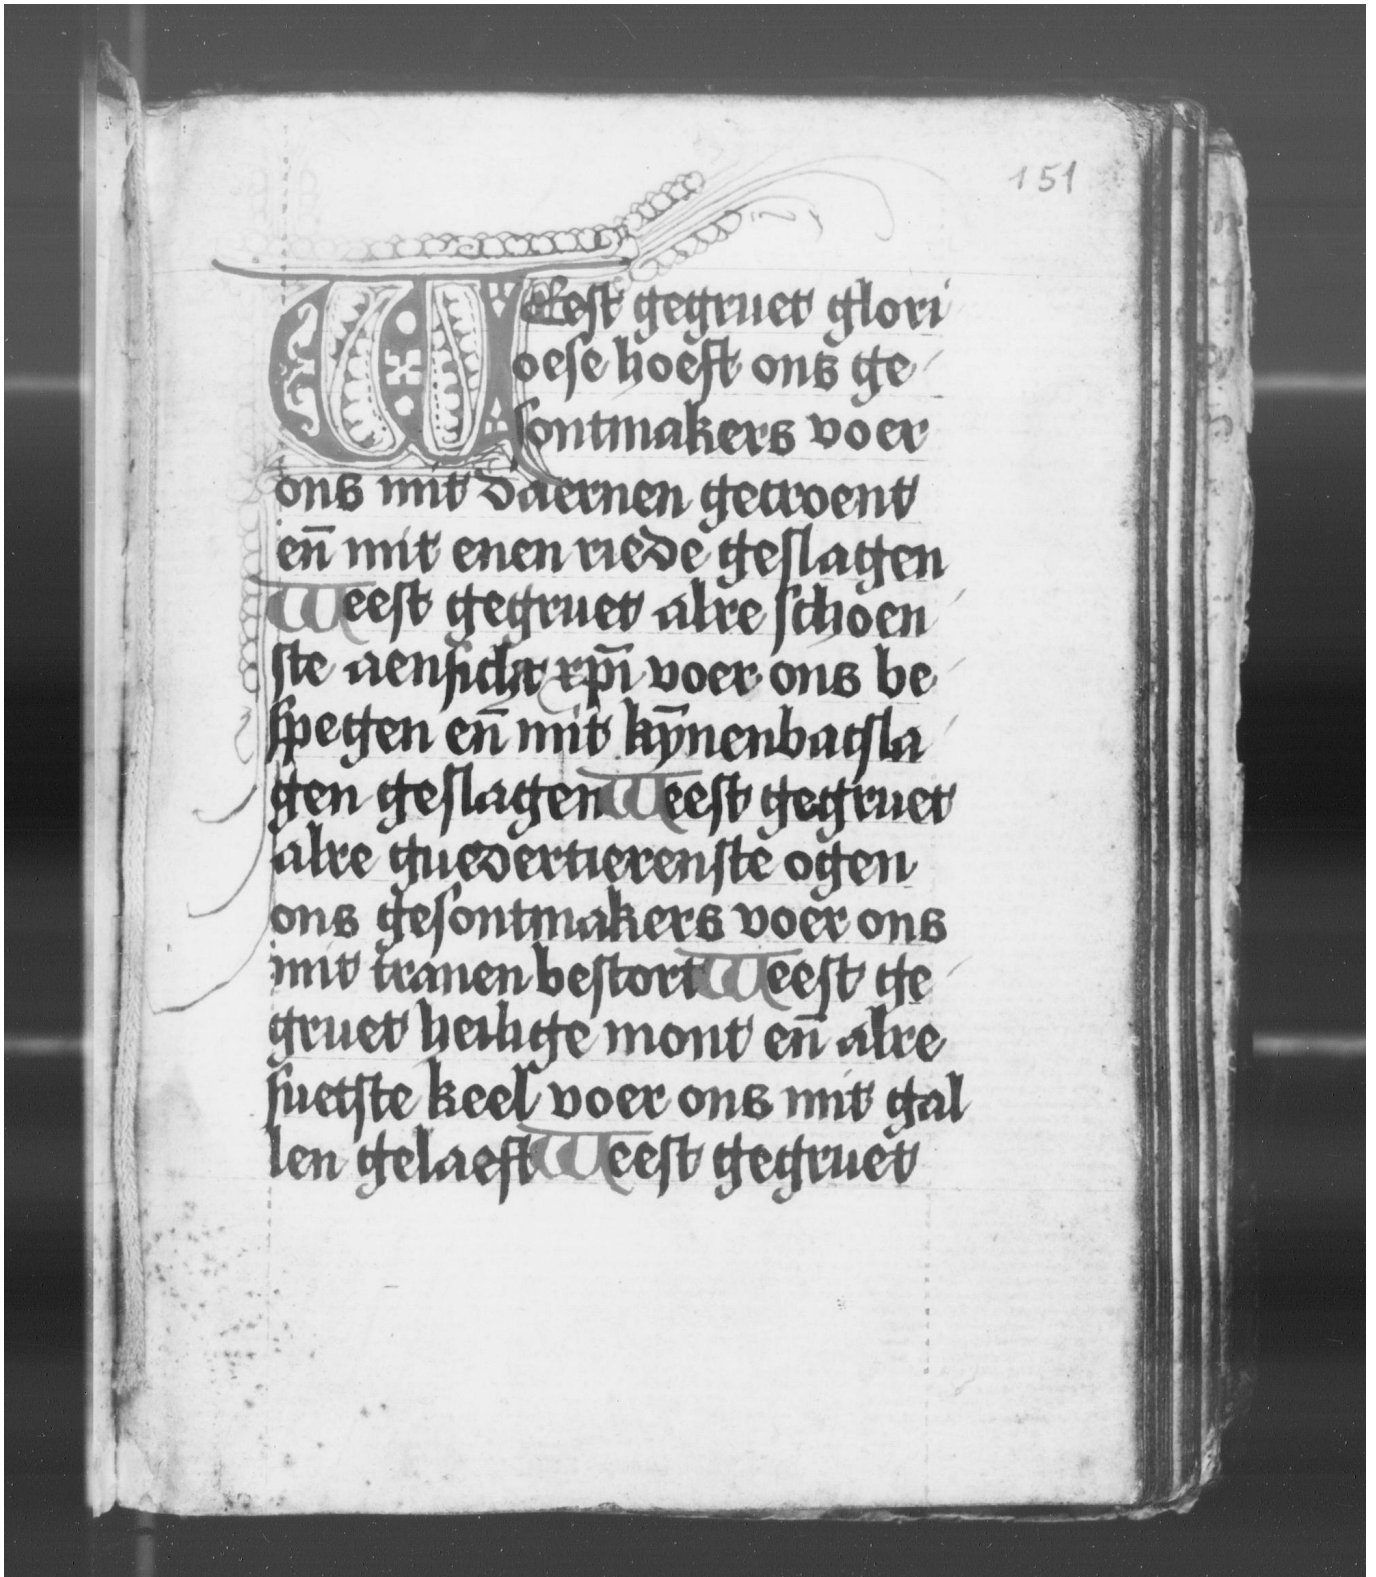 151
WEest gegruet glori
oese hoeft ons ge
sontmakers voer
ons mit daernen getroent
en̄ mit enen riede geslagen
Weest gegruet alre schoen
ste aensicht xp̄i voer ons be
spegen en̄ mit kȳnenbacsla
gen geslagen Weest gegruet
alre guedertierenste ogen
ons gesontmakers voer ons
mit tranen bestort Weest ge
gruet heilige mont en̄ alre
suetste keel voer ons mit gal
len gelaeft Weest gegruet